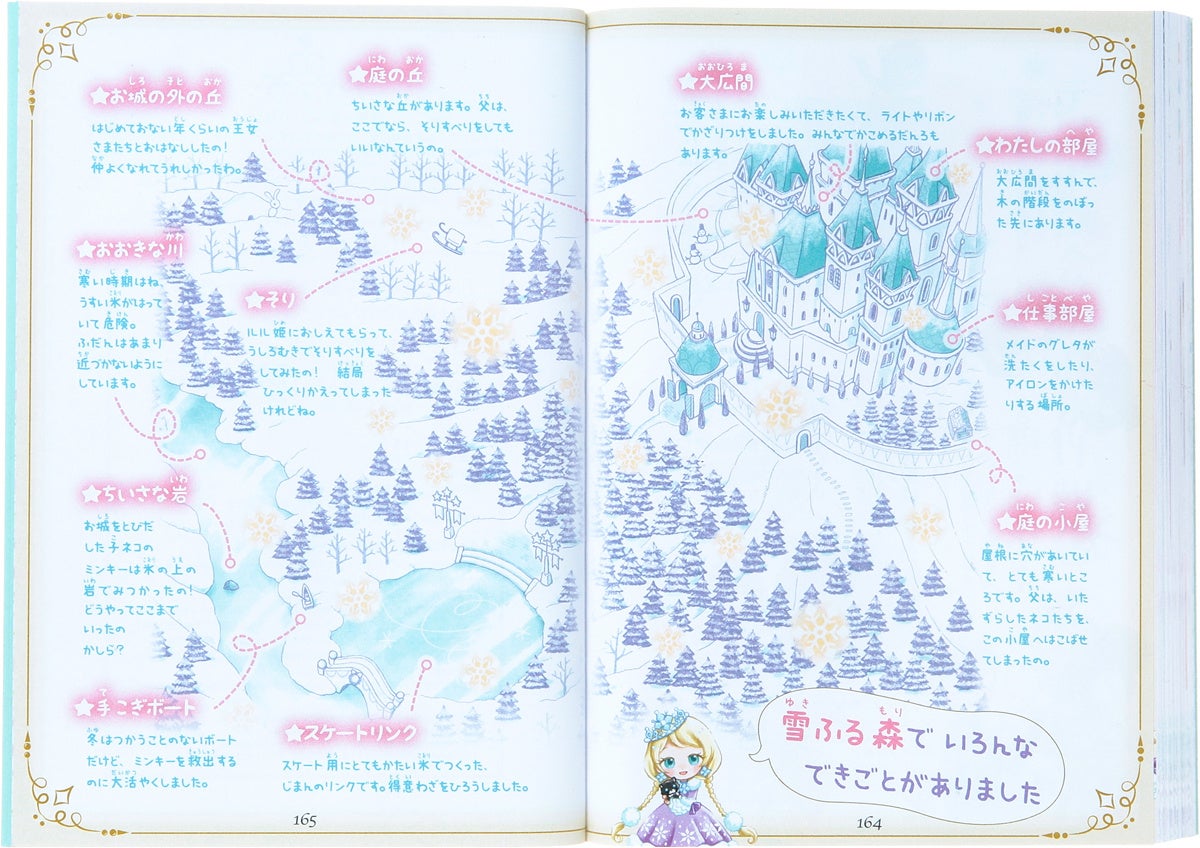 雪ふる森でいろんな
できごとがありました
★大広間
お客さまにお楽しみいただきたくて、ライトやリボン
でかざりつけをしました。みんなでかこめるだんろも
あります。
★わたしの部屋
大広間をすすんで、
木の階段をのぼっ
た先にあります。
★仕事部屋
メイドのグレタが
洗たくをしたり、
アイロンをかけた
りする場所。
★庭の小屋
屋根に穴があいてい
て、とても寒いとこ
ろです。父は、いた
ずらしたネコたちを、
この小屋へはこばせ
てしまったの。
164
★庭の丘
ちいさな丘があります。父は、
ここでなら、そりすべりをしても
いいなんていうの。
★お城の外の丘
はじめておない年くらいの王女
さまたちとおはなししたの!
仲よくなれてうれしかったわ。
★おおきな川
寒い時期はね、
うすい氷がはって
いて危険。
ふだんはあまり
近づかないように
しています。
★そり
ルル姫におしえてもらって、
うしろむきでそりすべりを
してみたの! 結局
ひっくりかえってしまった
けれどね。
★ちいさな岩
お城をとびだ
した子ネコの
ミンキーは氷の上の
岩でみつかったの!
どうやってここまで
いったの
かしら?
★手こぎボート
冬はつかうことのないボート
だけど、ミンキーを救出する
のに大活やくしました。
★スケートリンク
スケート用にとてもかたい氷でつくった、
じまんのリンクです。得意わざをひろうしました。
165